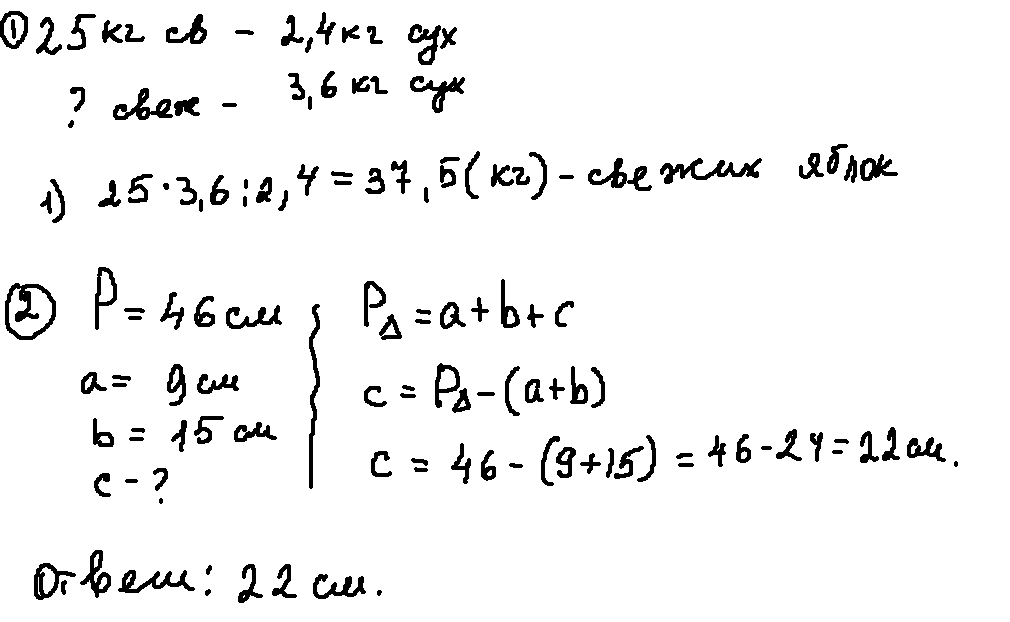 ① 25 кг св - 2,4 кг сух
? свеж - 3,6 кг сух
1) 25·3,6:2,4=37,5(кг)-свежих яблок
② P=46 см
a= 9 см
b = 15 см
c-?
P△=a+b+c
c = P△-(a+b)
c = 46-(9+15)=46-24=22 см.
Ответ: 22 см.